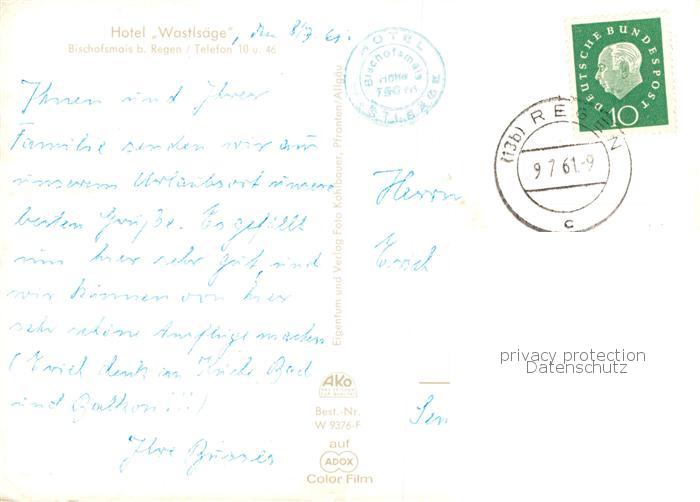 Hotel „Wastlsäge", den 8/7 61.
Bischofsmais b. Regen / Telefon 10 u. 46
Ihnen und Ihrer
Familie senden wir aus
unserem Urlaubsort unsere
besten Grüße. Es gefällt
uns hier sehr gut, und
wir können von hier
sehr schöne Ausflüge machen
(Erich denk an Küche Bad
und Balkon!!!)
Ihre
HOTEL
Bischofsmais
Höhe
WASTLSÄGE
Eigentum und Verlag Foto Kohlbauer, Pfronten/Allgäu
AKO
Best.-Nr.
W 9376-F
auf
ADOX
Color Film
Herrn
DEUTSCHE BUNDESPOST
10
(13b) REGEN
9 7 61.-9
c
privacy protection
Datenschutz